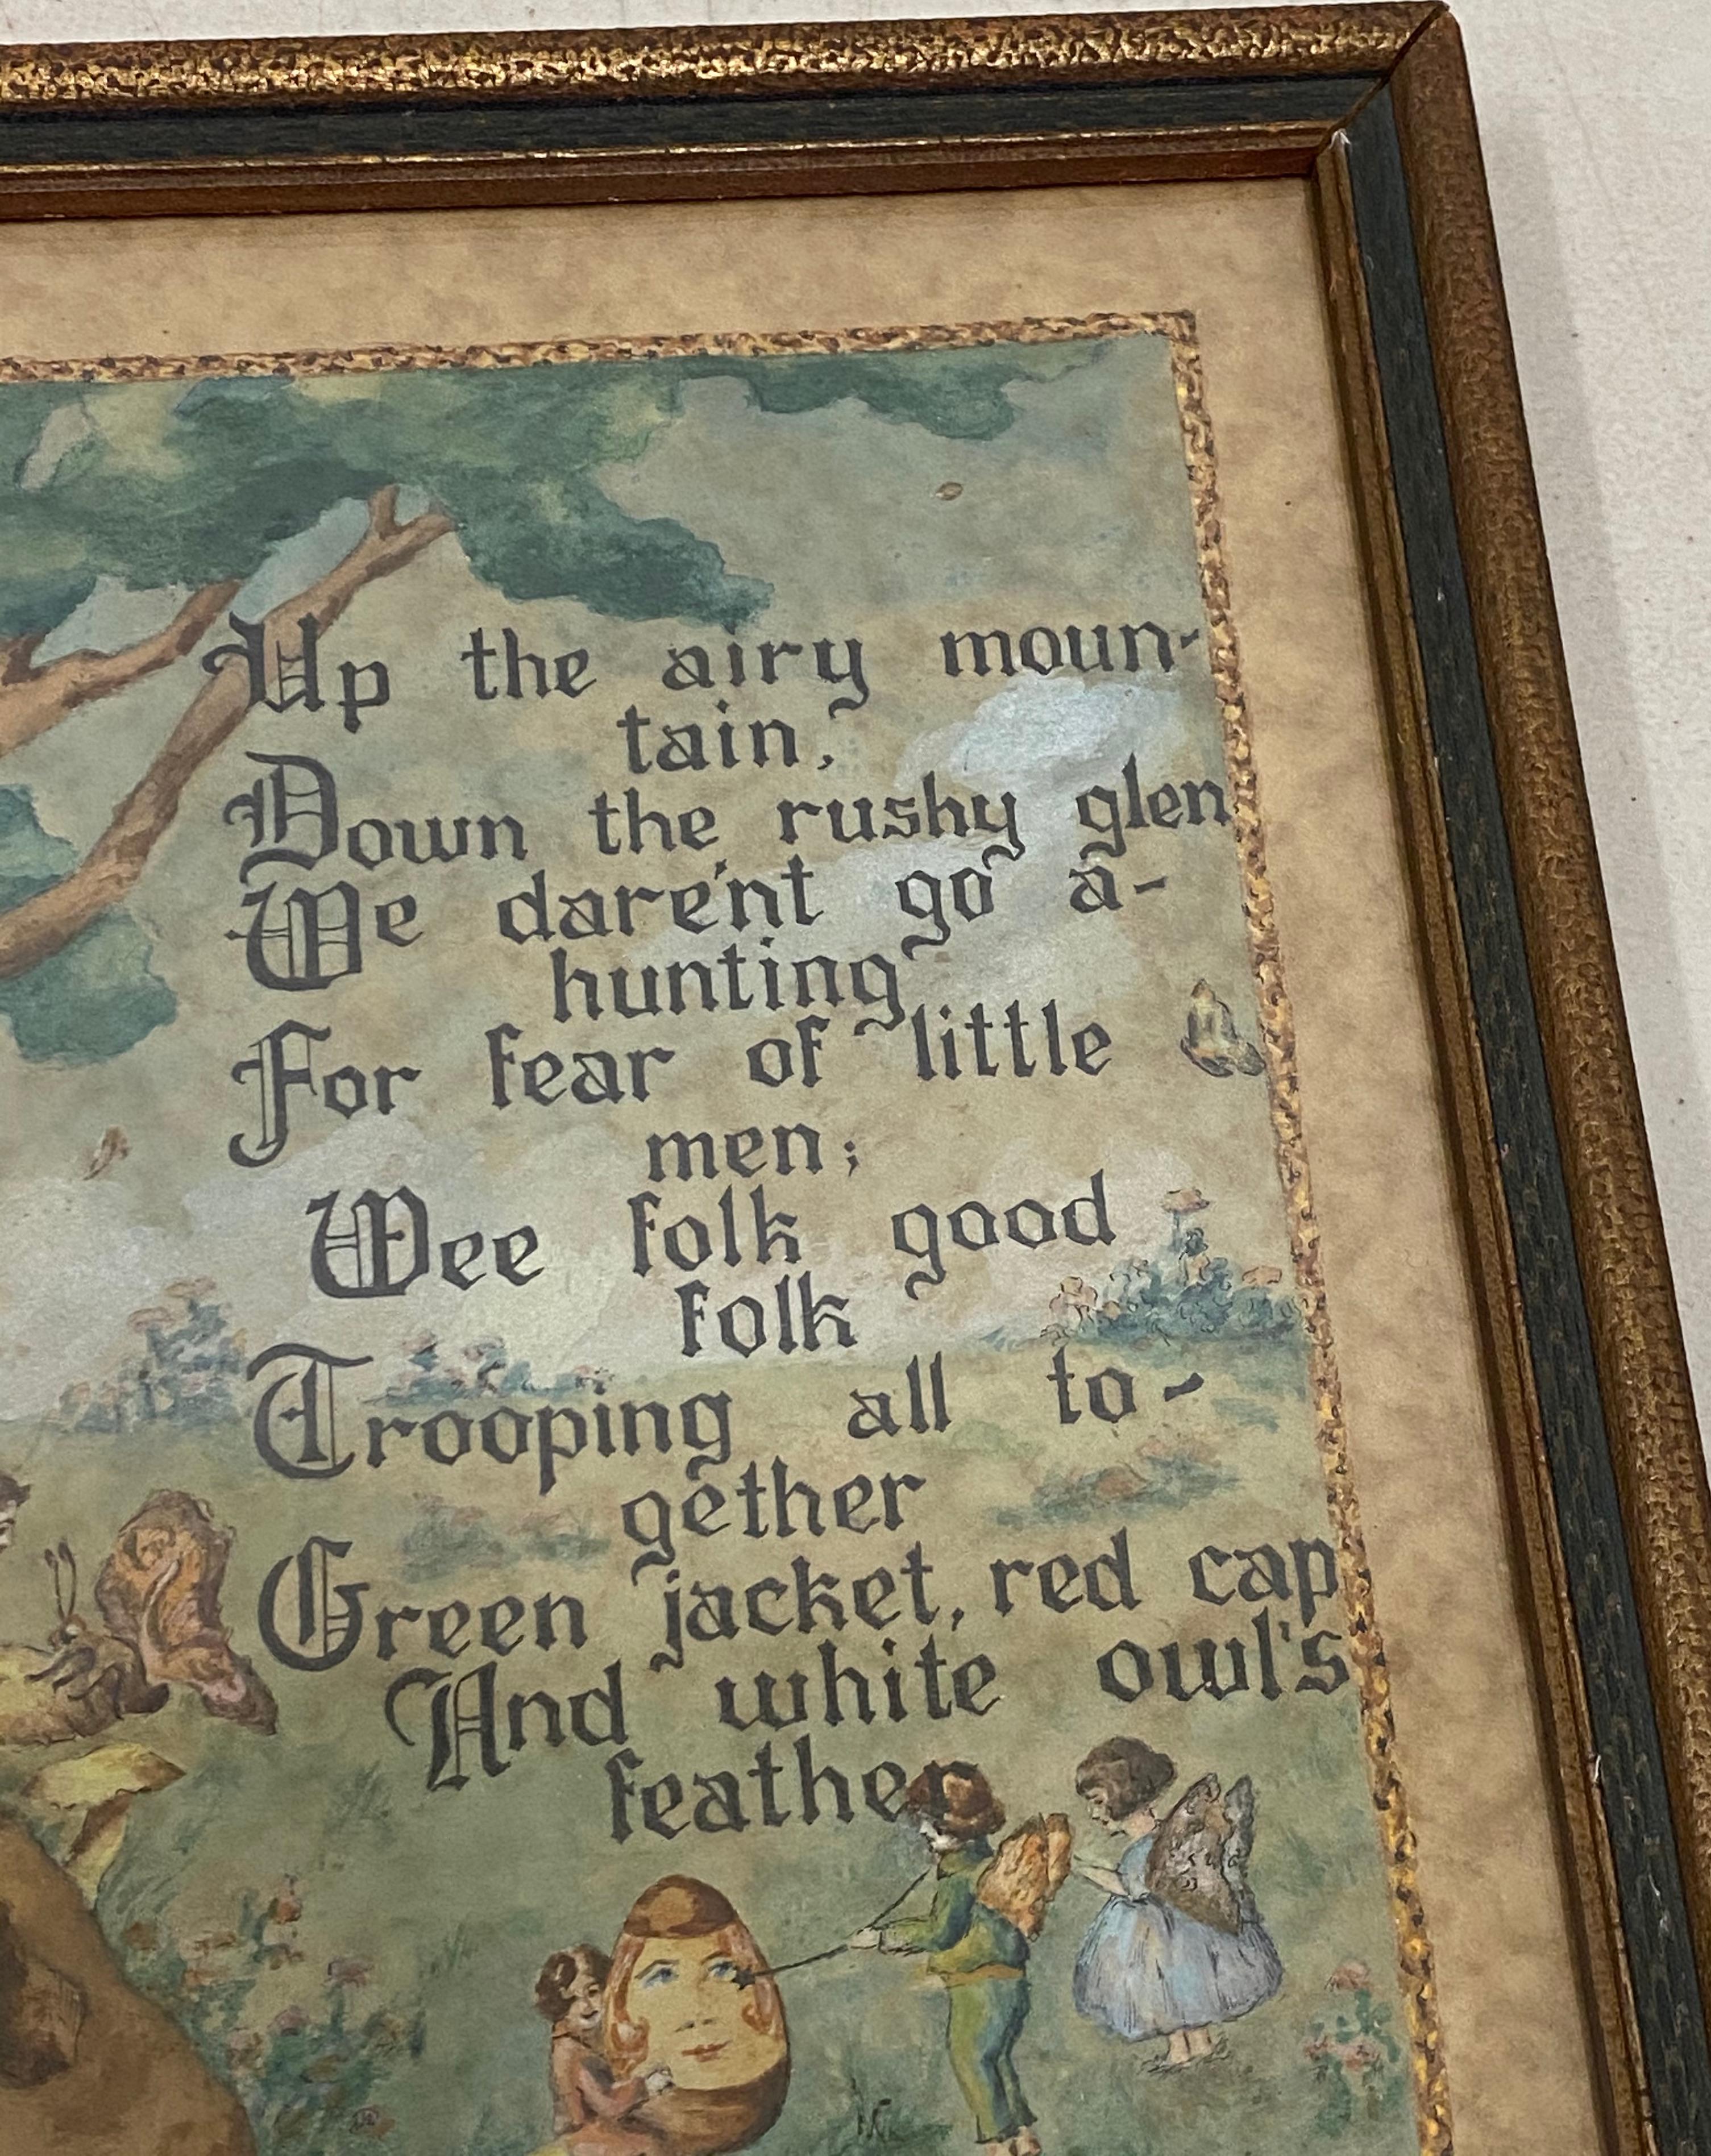 Up the airy moun-
tain,
Down the rushy glen
We dare'nt go a-
hunting
For fear of little
men;
Wee folk good
folk
Trooping all to-
gether
Green jacket, red cap
And white owl's
feather